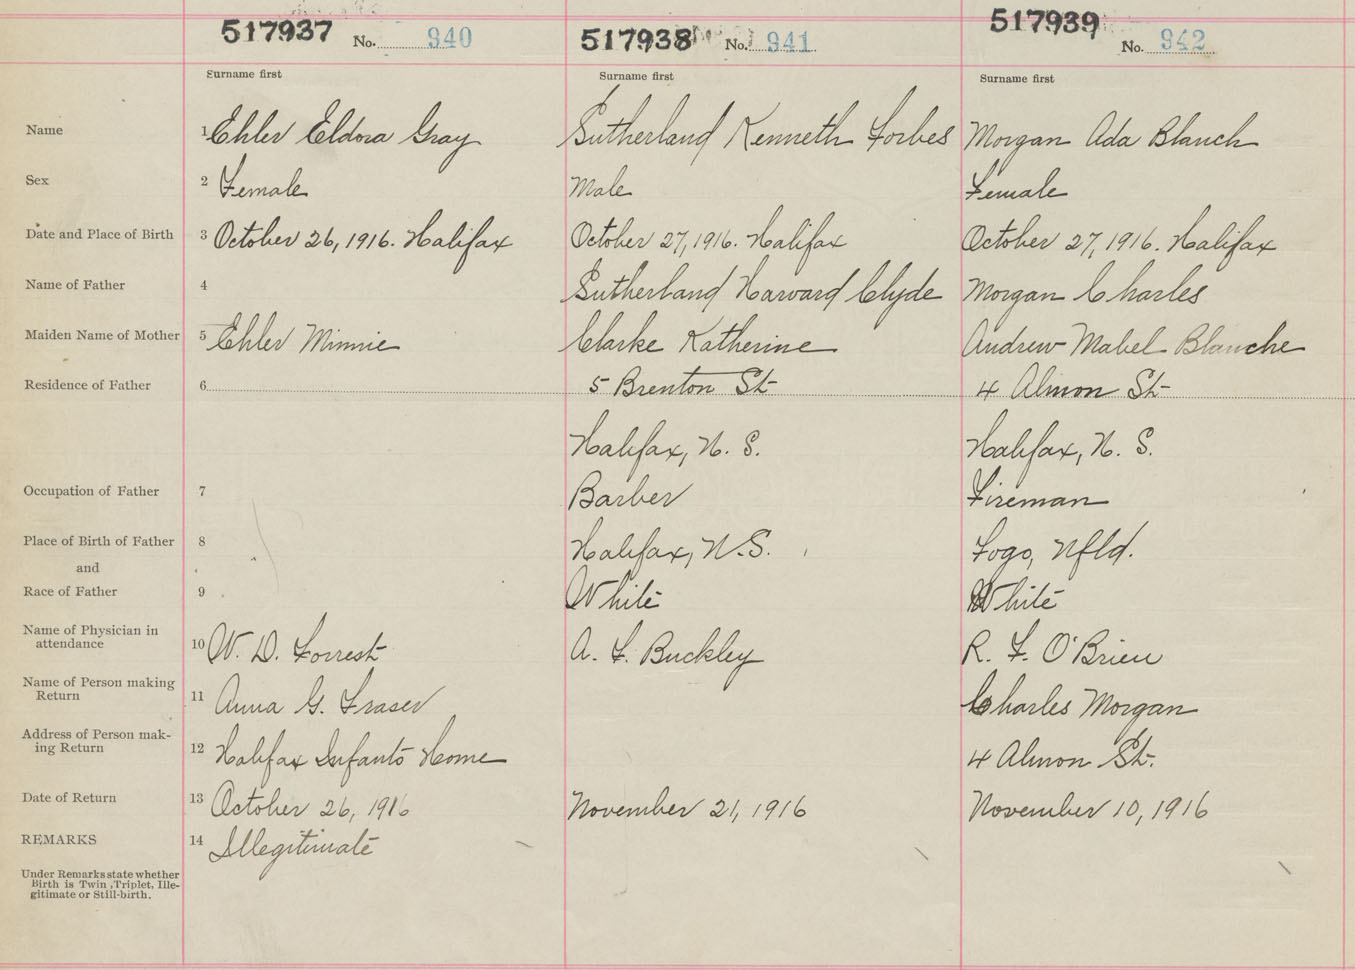 517937 No. 940 517938 No. 941 517939 No. 942
Surname first Surname first Surname first
Name 1 Ehler Eldora Gray Sutherland Kenneth Forbes Morgan Ada Blanch
Sex 2 Female Male Female
Date and Place of Birth 3 October 26, 1916. Halifax October 27, 1916. Halifax October 27, 1916. Halifax
Name of Father 4 Sutherland Harvard Clyde Morgan Charles
Maiden Name of Mother 5 Ehler Minnie Clarke Katherine Andrew Mabel Blanche
Residence of Father 6 5 Brenton St 4 Almon St
Halifax, N. S. Halifax, N. S.
Occupation of Father 7 Barber Fireman
Place of Birth of Father 8 Halifax, N.S. Fogo, Nfld.
and
Race of Father 9 White White
Name of Physician in
attendance 10 W. D. Forrest A. F. Buckley R. F. O'Brien
Name of Person making
Return 11 Anna G. Fraser Charles Morgan
Address of Person mak-
ing Return 12 Halifax Infants Home 4 Almon St.
Date of Return 13 October 26, 1916 November 21, 1916 November 10, 1916
REMARKS 14 Illegitimate
Under Remarks state whether
Birth is Twin, Triplet, Ille-
gitimate or Still-birth.